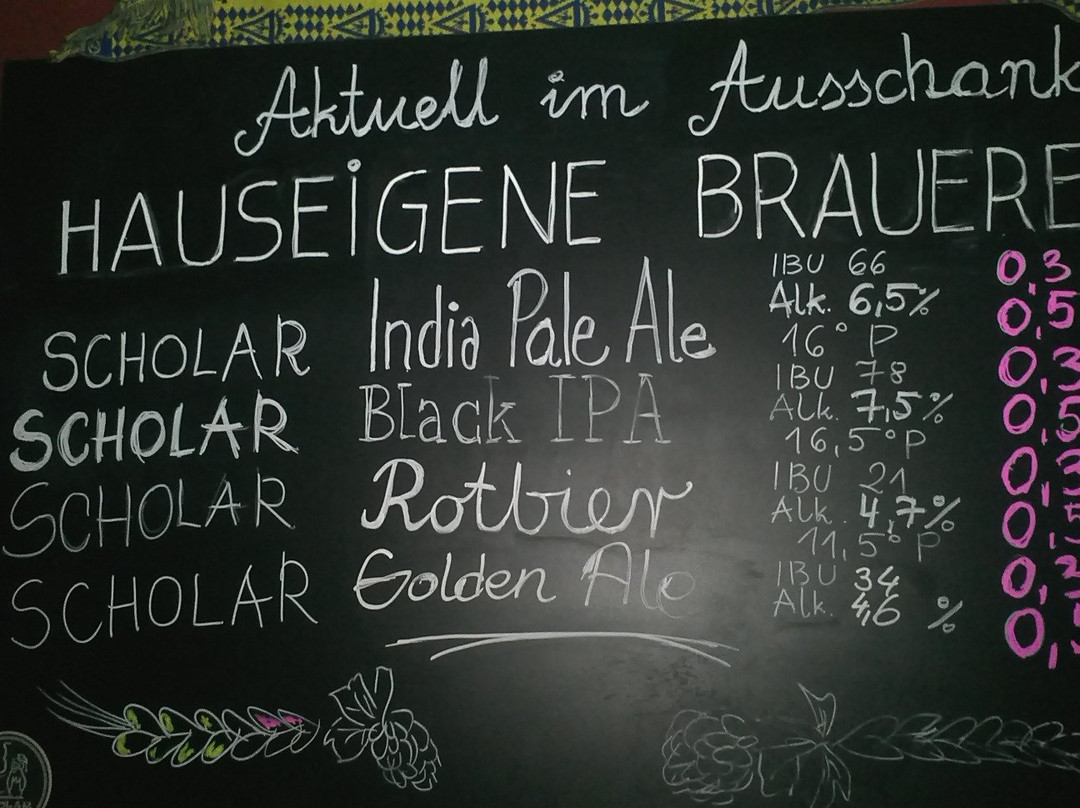 Aktuell im Ausschank
HAUSEiGENE BRAUERE
SCHOLAR India Pale Ale IBU 66 0,3
Alk. 6,5% 0,5
16° P
SCHOLAR Black IPA IBU 78 0,3
Alk. 7,5% 0,5
16,5° P
SCHOLAR Rotbier IBU 21 0,3
Alk. 4,7% 0,5
11,5° P
SCHOLAR Golden Ale IBU 34 0,3
Alk. 4,6 % 0,5